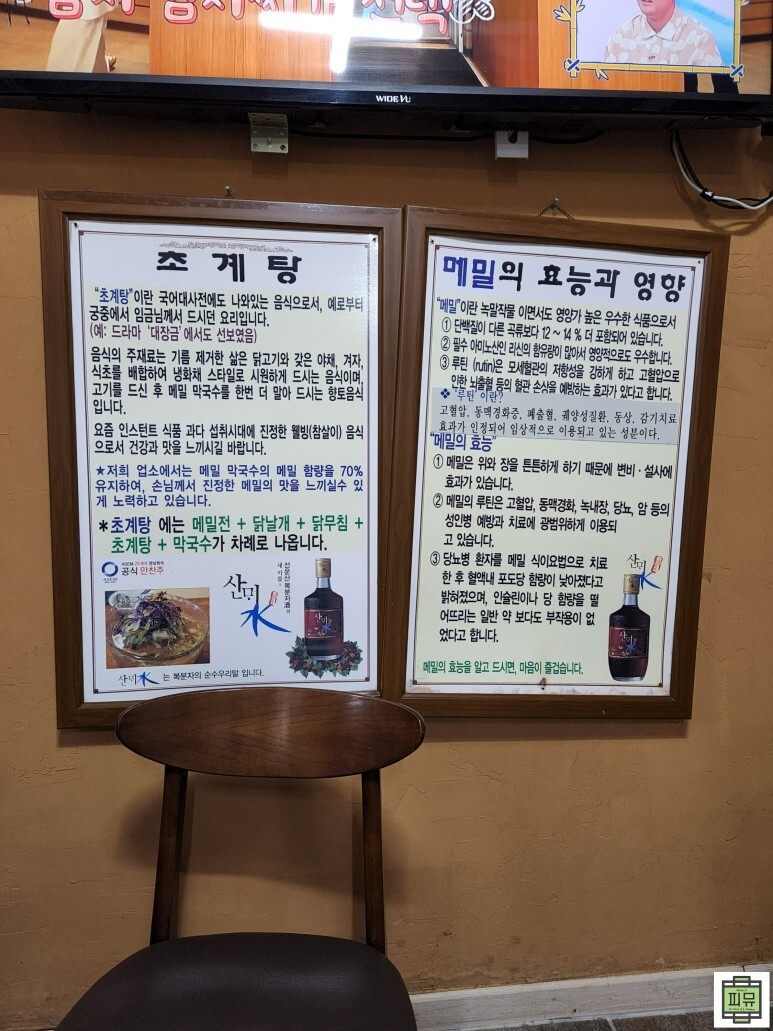 WIDE VU
초계탕
"초계탕"이란 국어대사전에도 나와있는 음식으로서, 예로부터
궁중에서 임금님께서 드시던 요리입니다.
(예: 드라마 '대장금' 에서도 선보였음)
음식의 주재료는 기름 제거한 삶은 닭고기와 갖은 야채, 겨자,
식초를 배합하여 냉화채 스타일로 시원하게 드시는 음식이며,
고기를 드신 후 메밀 막국수를 한번 더 말아 드시는 향토음식
입니다.
요즘 인스턴트 식품 과다 섭취시대에 진정한 웰빙(참살이) 음식
으로서 건강과 맛을 느끼시길 바랍니다.
★저희 업소에서는 메밀 막국수의 메밀 함량을 70%
유지하여, 손님께서 진정한 메밀의 맛을 느끼실수 있
게 노력하고 있습니다.
*초계탕 에는 메밀전 + 닭날개 + 닭무침 +
초계탕 + 막국수가 차례로 나옵니다.
공식 만찬주
산미水
선운산 복분자酒의
새이름!
산미水 는 복분자의 순수우리말 입니다.
메밀의 효능과 영향
"메밀"이란 녹말작물 이면서도 영양가 높은 우수한 식품으로서
① 단백질이 다른 곡류보다 12 ~ 14 % 더 포함되어 있습니다.
② 필수 아미노산인 리신의 함유량이 많아서 영양적으로도 우수합니다.
③ 루틴 (rutin)은 모세혈관의 저항성을 강하게 하고 고혈압으로
인한 뇌출혈 등의 혈관 손상을 예방하는 효과가 있다고 합니다.
❖ '루틴' 이란?
고혈압, 동맥경화증, 폐출혈, 궤양성질환, 동상, 감기치료
효과가 인정되어 임상적으로 이용되고 있는 성분이다.
"메밀의 효능"
① 메밀은 위와 장을 튼튼하게 하기 때문에 변비 · 설사에
효과가 있습니다.
② 메밀의 루틴은 고혈압, 동맥경화, 녹내장, 당뇨, 암 등의
성인병 예방과 치료에 광범위하게 이용되
고 있습니다.
③ 당뇨병 환자를 메밀 식이요법으로 치료
한 후 혈액내 포도당 함량이 낮아졌다고
밝혀졌으며, 인슐린이나 당 함량을 떨
어뜨리는 일반 약 보다도 부작용이 없
었다고 합니다.
산미水
메밀의 효능을 알고 드시면, 마음이 즐겁습니다.
피뮤